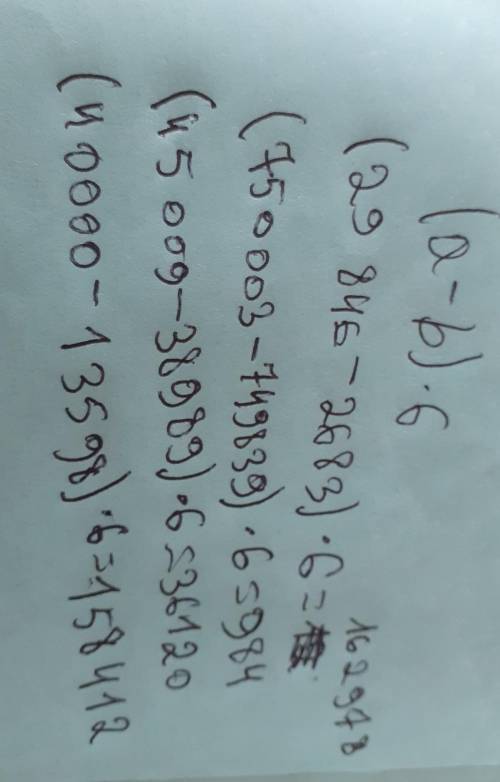 (a-b)·6
(29 846-2683)·6=162978
(750 003-749839)·6=984
(45 009-38989)·6=36120
(40000-13598)·6=158412